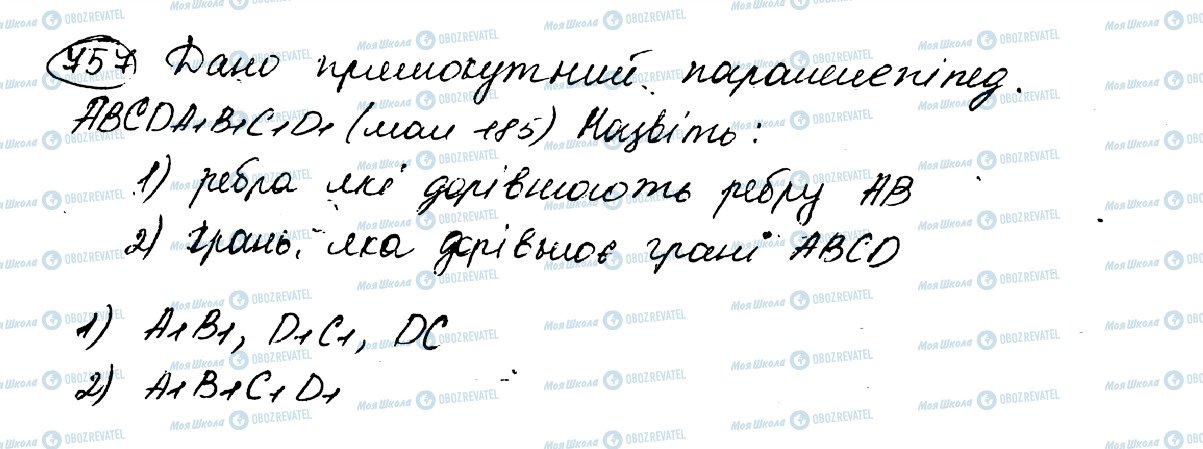 757 Дано прямокутний паралелепіпед.
ABCDA1B1C1D1 (мал 185) Назвіть:
1) ребра які дорівнюють ребру AB
2) Грань, яка дорівнює грані ABCD
1) A1B1, D1C1, DC
2) A1B1C1D1